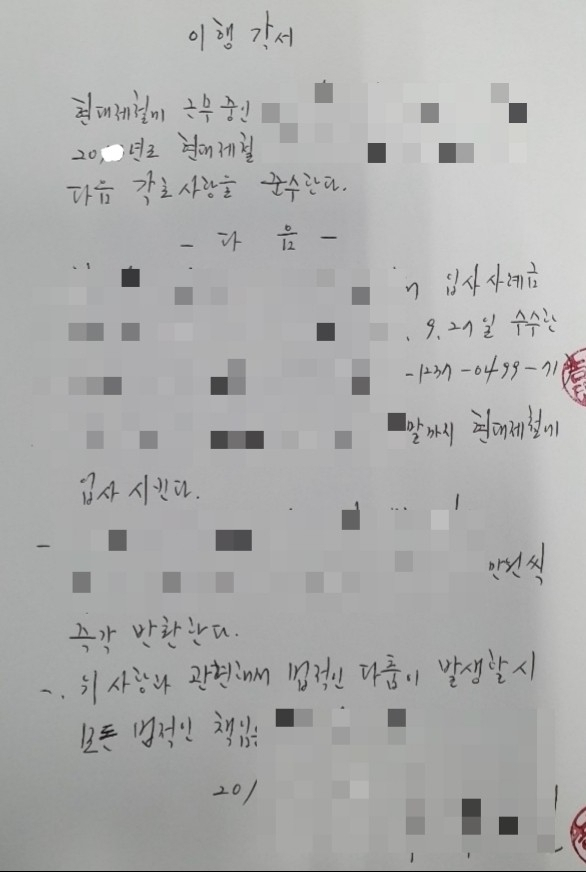 이행각서
현대제철에 근무중인
20 년도 현대제철
다음 각호 사항을 준수한다.
- 다 음 -
입사사례금
. 9. 27일 수수한
-1237-0499-71
말까지 현대제철에
입사 시킨다.
-
만원씩
즉각 반환한다.
-. 위 사항과 관련해서 법적인 다툼이 발생할 시
모든 법적인 책임
201